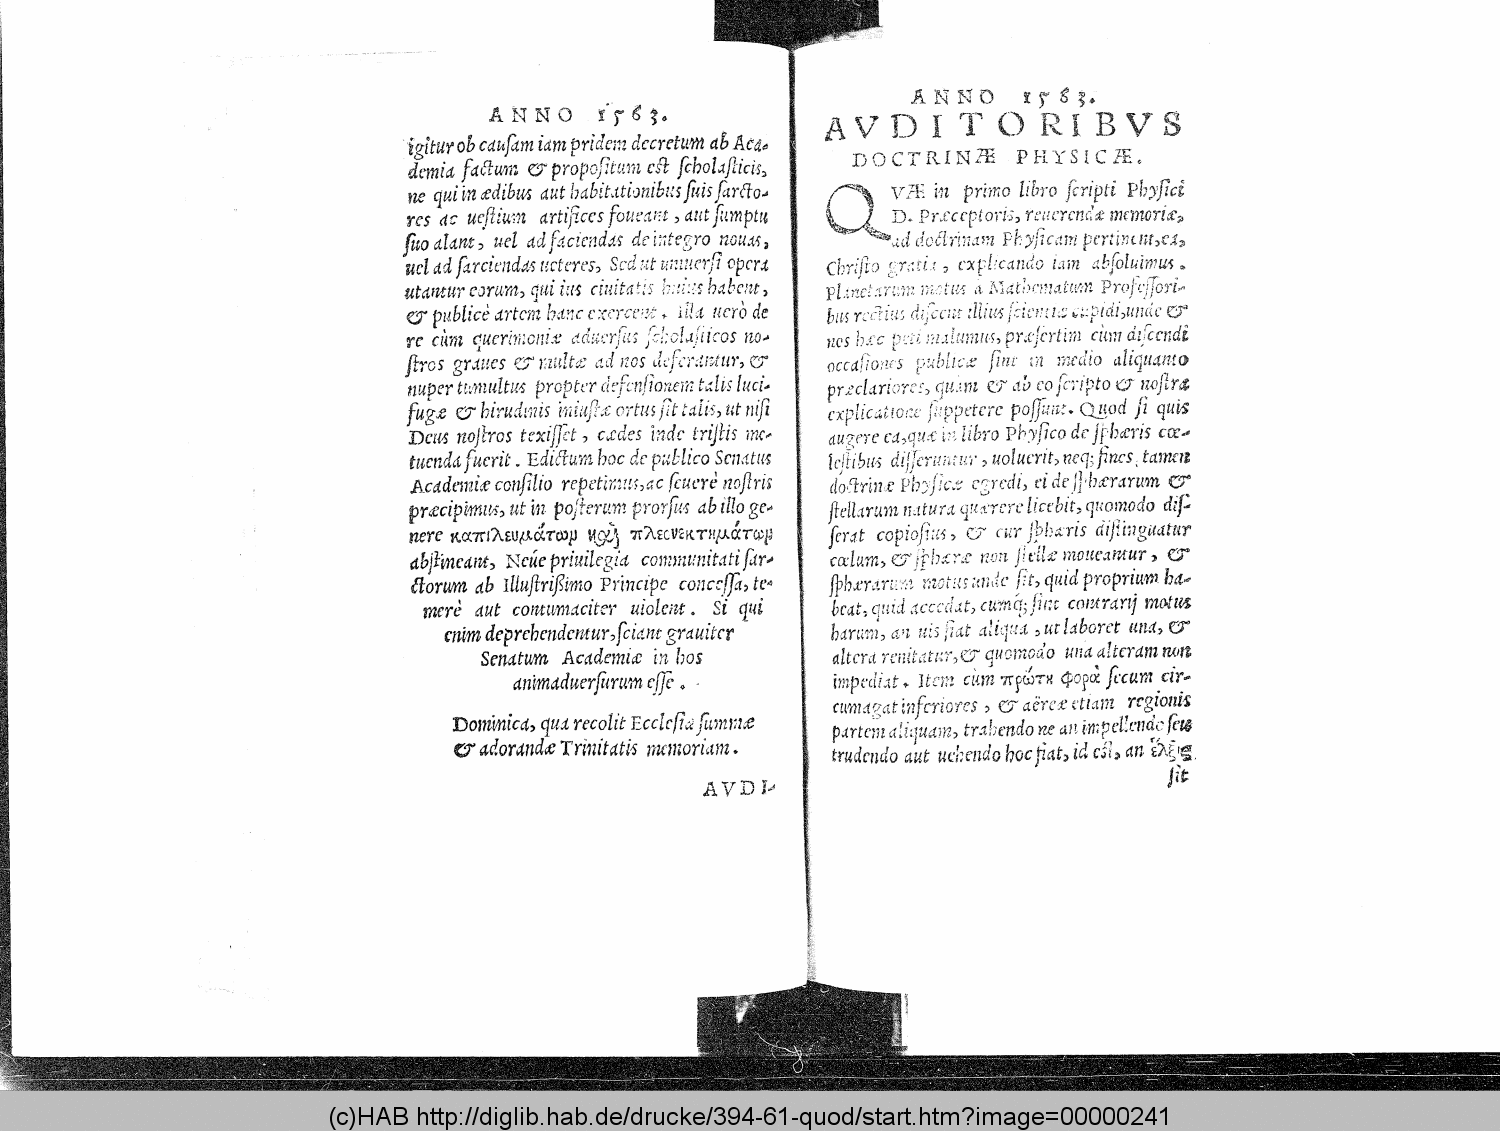 ANNO 1563.
igitur ob cauſam iam pridem decretum ab Aca-
demia factum & propoſitum eſt ſcholaſticis,
ne qui in ædibus aut habitationibus ſuis ſarcto-
res ac ueſtium artifices foueant, aut ſumptu
ſuo alant, uel ad faciendas de integro nouas,
uel ad ſarciendas ueteres, Sed ut uniuerſi opera
utantur eorum, qui ius ciuitatis huius habent,
& publicè artem hanc exercent. illa uerò de
re cùm querimoniæ aduerſus ſcholaſticos no-
ſtros graues & multæ ad nos deferantur, &
nuper tumultus propter defenſionem talis luci-
fugæ & hirudinis iniuſtæ ortus ſit talis, ut niſi
Deus noſtros texiſſet, cædes inde triſtis me-
tuenda fuerit. Edictum hoc de publico Senatus
Academiæ conſilio repetimus, ac ſeuerè noſtris
præcipimus, ut in poſterum prorſus ab illo ge-
nere καπιλευμάτωμ καὶ πλεονεκτημάτωμ
abſtineant, Neúe priuilegia communitati ſar-
ctorum ab Illuſtrißimo Principe conceſſa, te-
merè aut contumaciter uiolent. Si qui
enim deprehendentur, ſciant grauiter
Senatum Academiæ in hos
animaduerſurum eſſe.
Dominica, qua recolit Eccleſia ſummæ
& adorandæ Trinitatis memoriam.
AVDI-
ANNO 1563.
AVDITORIBVS
DOCTRINÆ PHYSICÆ.
QVÆ in primo libro ſcripti Phyſici
D. Præceptoris, reuerendæ memoriæ,
ad doctrinam Phyſicam pertinent, ea,
Chriſto gratia, explicando iam abſoluimus.
Planetarum motus a Mathematum Profeſſori-
bus rectius diſcent illius ſcientiæ cupidi, unde &
nos hæc peti malumus, præſertim cùm diſcendi
occaſiones publicæ ſint in medio aliquanto
præclariores, quàm & ab eo ſcripto & noſtra
explicatione ſuppetere poſſunt. Quod ſi quis
augere ea, quæ in libro Phyſico de ſphæris cœ-
leſtibus diſſeruntur, uoluerit, neq; fines tamen
doctrinæ Phyſicæ egredi, ei de ſphærarum &
ſtellarum natura quærere licebit, quomodo dif-
ferat copioſius, & cur ſphæris diſtinguatur
cœlum, & ſphæræ non ſtellæ moueantur, &
ſphærarum motus unde ſit, quid proprium ha-
beat, quid accedat, cumq́; ſint contrarij motus
harum, an uis fiat aliqua, ut laboret una, &
altera renitatur, & quomodo una alteram non
impediat. Item cùm πρώτη φορὰ ſecum cir-
cumagat inferiores, & aëreæ etiam regionis
partem aliquam, trahendo ne an impellendo ſeu
trudendo aut uehendo hoc fiat, id eſt, an ἕλξις
ſit
(c)HAB http://diglib.hab.de/drucke/394-61-quod/start.htm?image=00000241